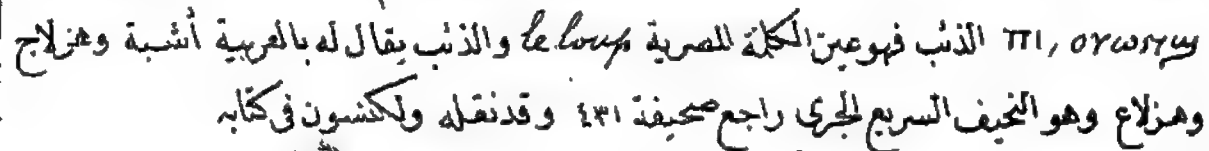 ⲡⲓ, ⲟⲩⲱⲛϣ الذئب فهو عين الكلمة المصرية le loup والذئب يقال له بالعربية أشبة وهزلاج
وهزلاع وهو النحيف السريع الجرى راجع صحيفة ٤٣١ وقد نقله ولكنسون فى كتابه